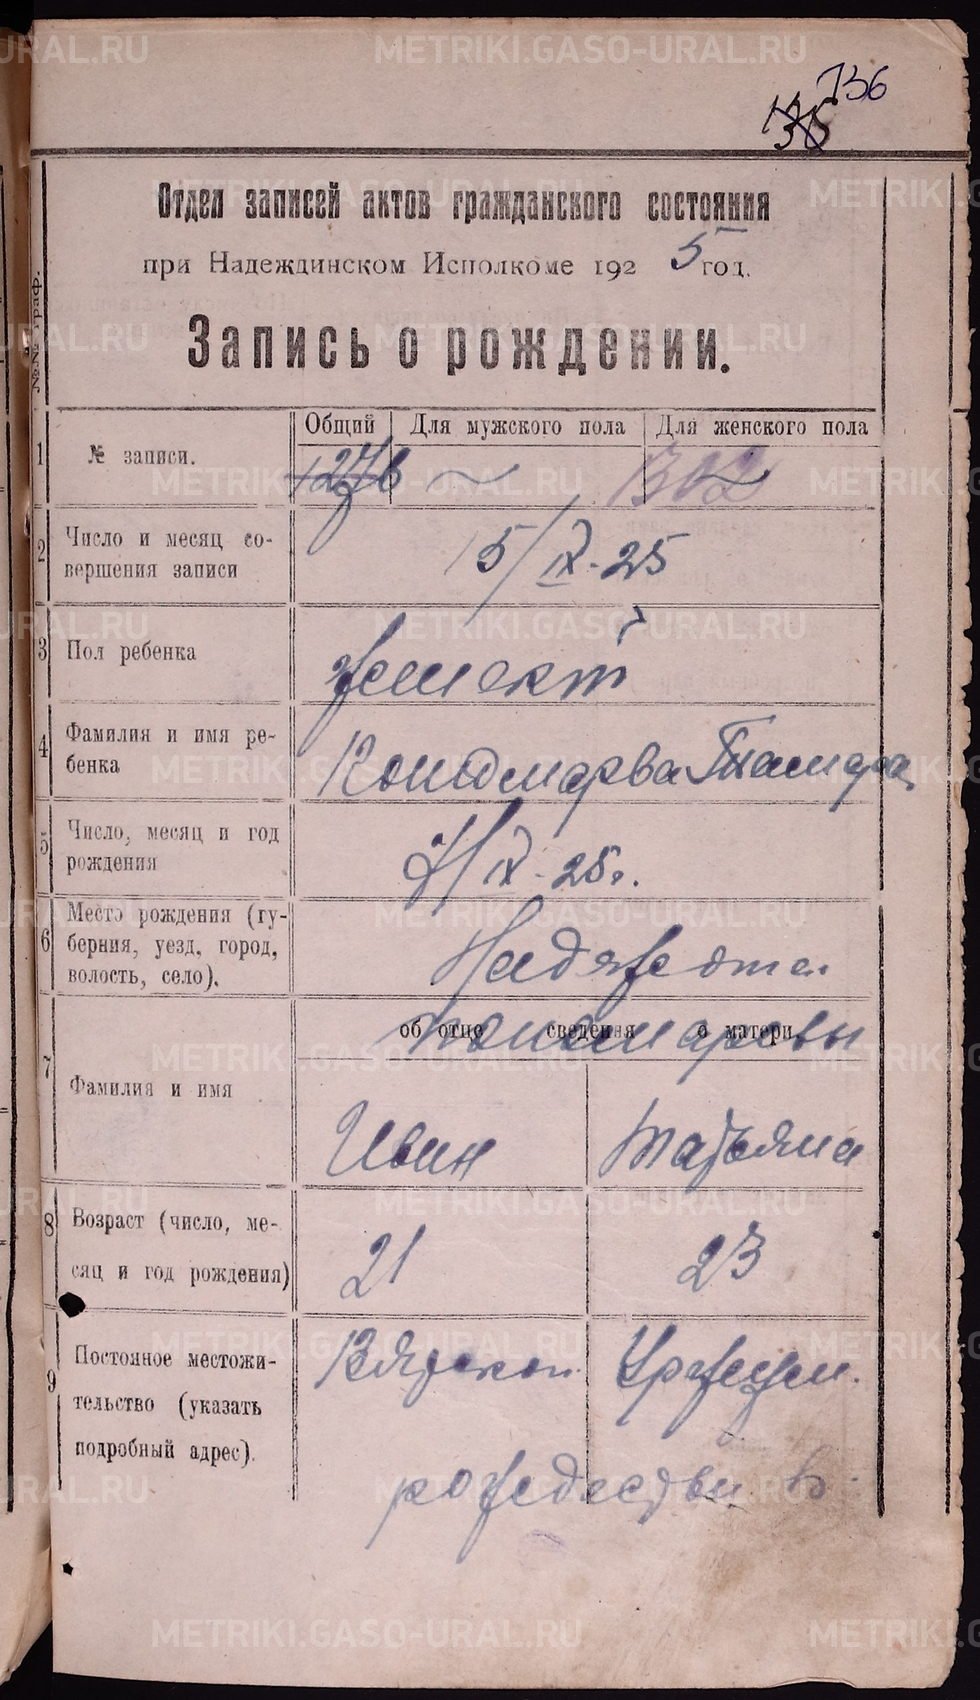 736
Отдел записей актов гражданского состояния
при Надеждинском Исполкоме 1925 год.
Запись о рождении.
№№ граф.
Общий Для мужского пола Для женского пола
1 № записи. 302
2 Число и месяц со-
вершения записи
15/IX-25
3 Пол ребенка
женск
4 Фамилия и имя ре-
бенка
Тамара
5 Число, месяц и год
рождения
/IX-25г.
6 Место рождения (гу-
берния, уезд, город,
волость, село).
об отце сведения о матери
Пономаревы
7 Фамилия и имя
Иван Татьяна
8 Возраст (число, ме-
сяц и год рождения)
21 23
9 Постояное местожи-
тельство (указать
подробный адрес).
Вятской
METRIKI.GASO-URAL.RU